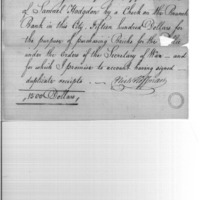 of Samuel Hodgdon by a Check on the Branch
Bank in this City, fifteen hundred Dollars for
the purpose of purchasing Bricks for the
under the Orders of the Secretary of War — and
for which I promise to account having signed
duplicate receipts
1500 Dollars,